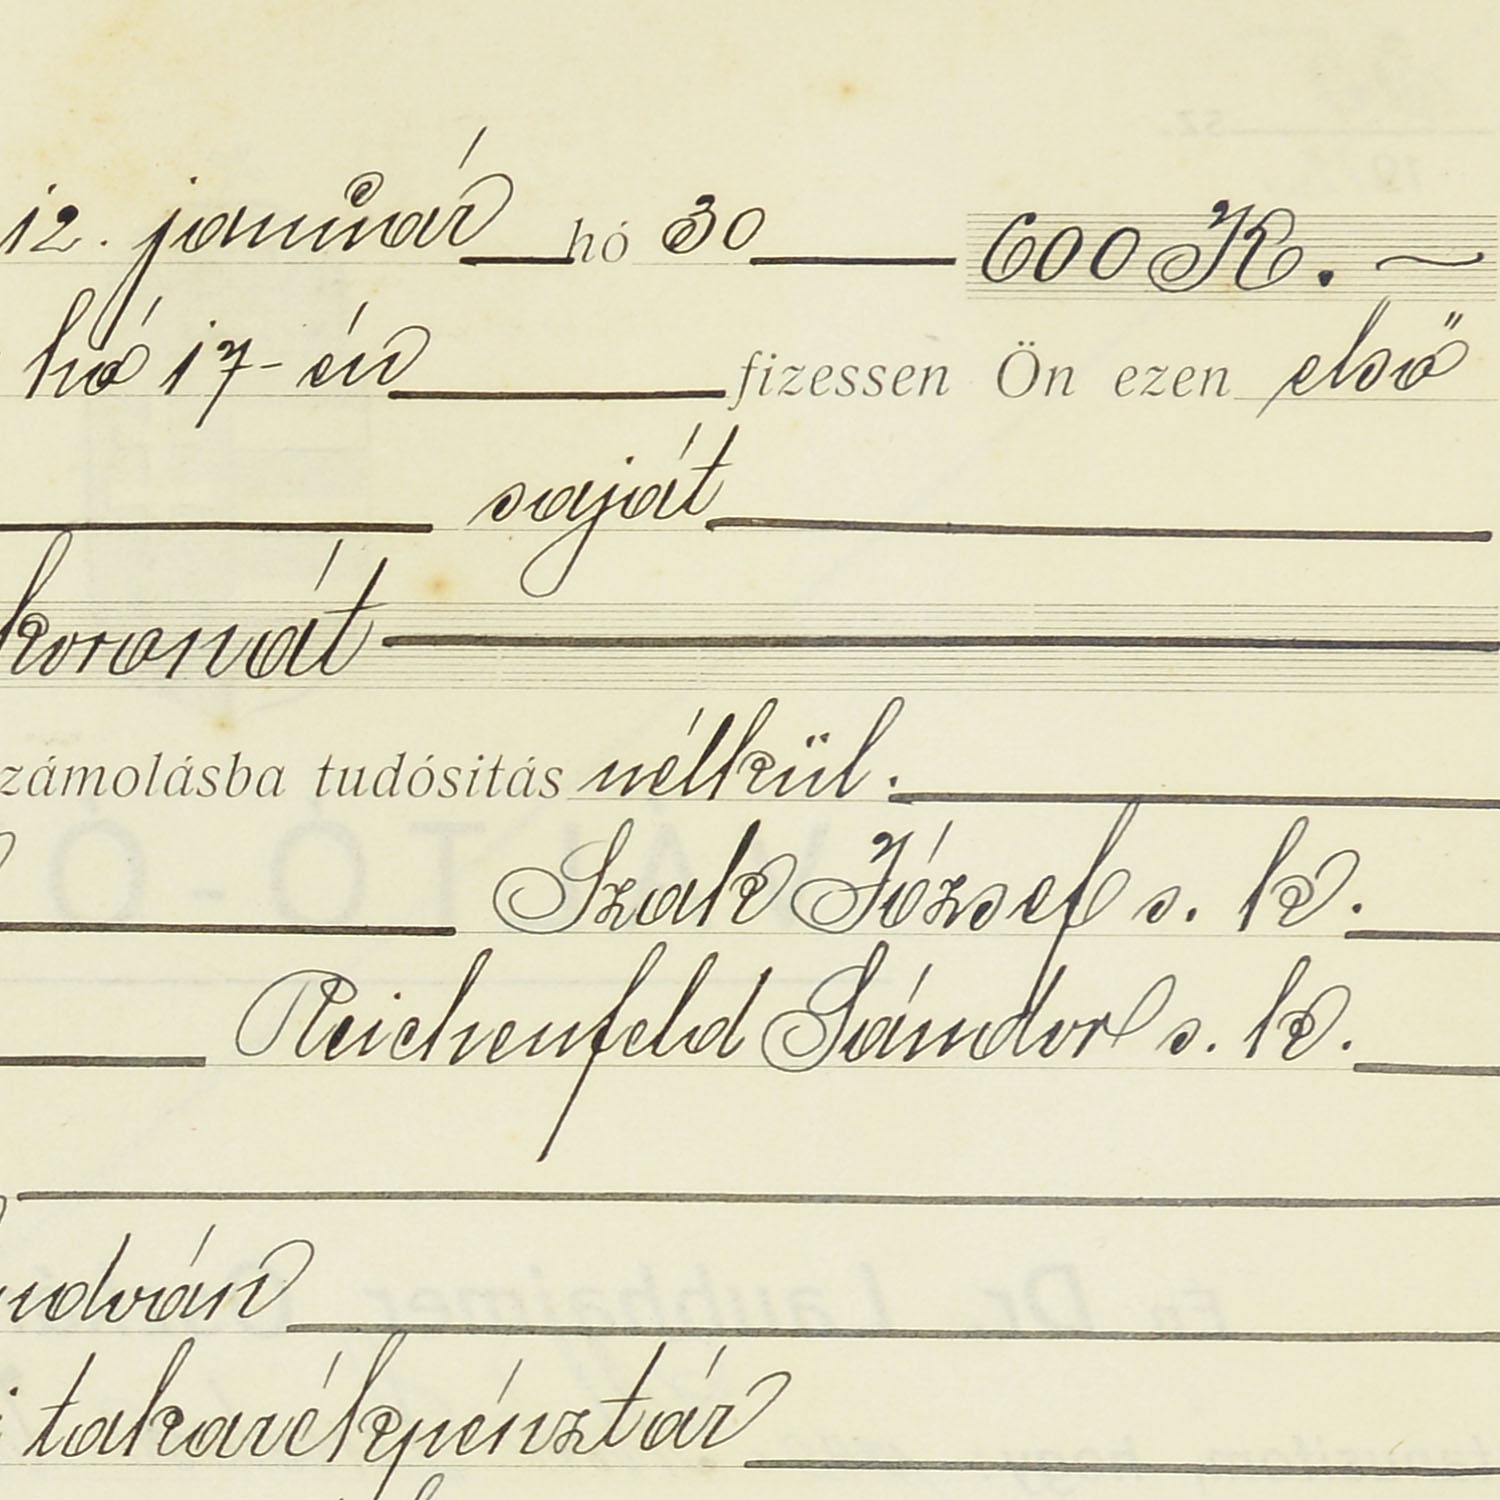 12. január hó 30 600 K.
hó 17-én fizessen Ön ezen első
saját
koronát
számolásba tudósitás nélkül.
Szak József s. k.
Reichenfeld Sándor s. k.
udván
i takarékpénztár